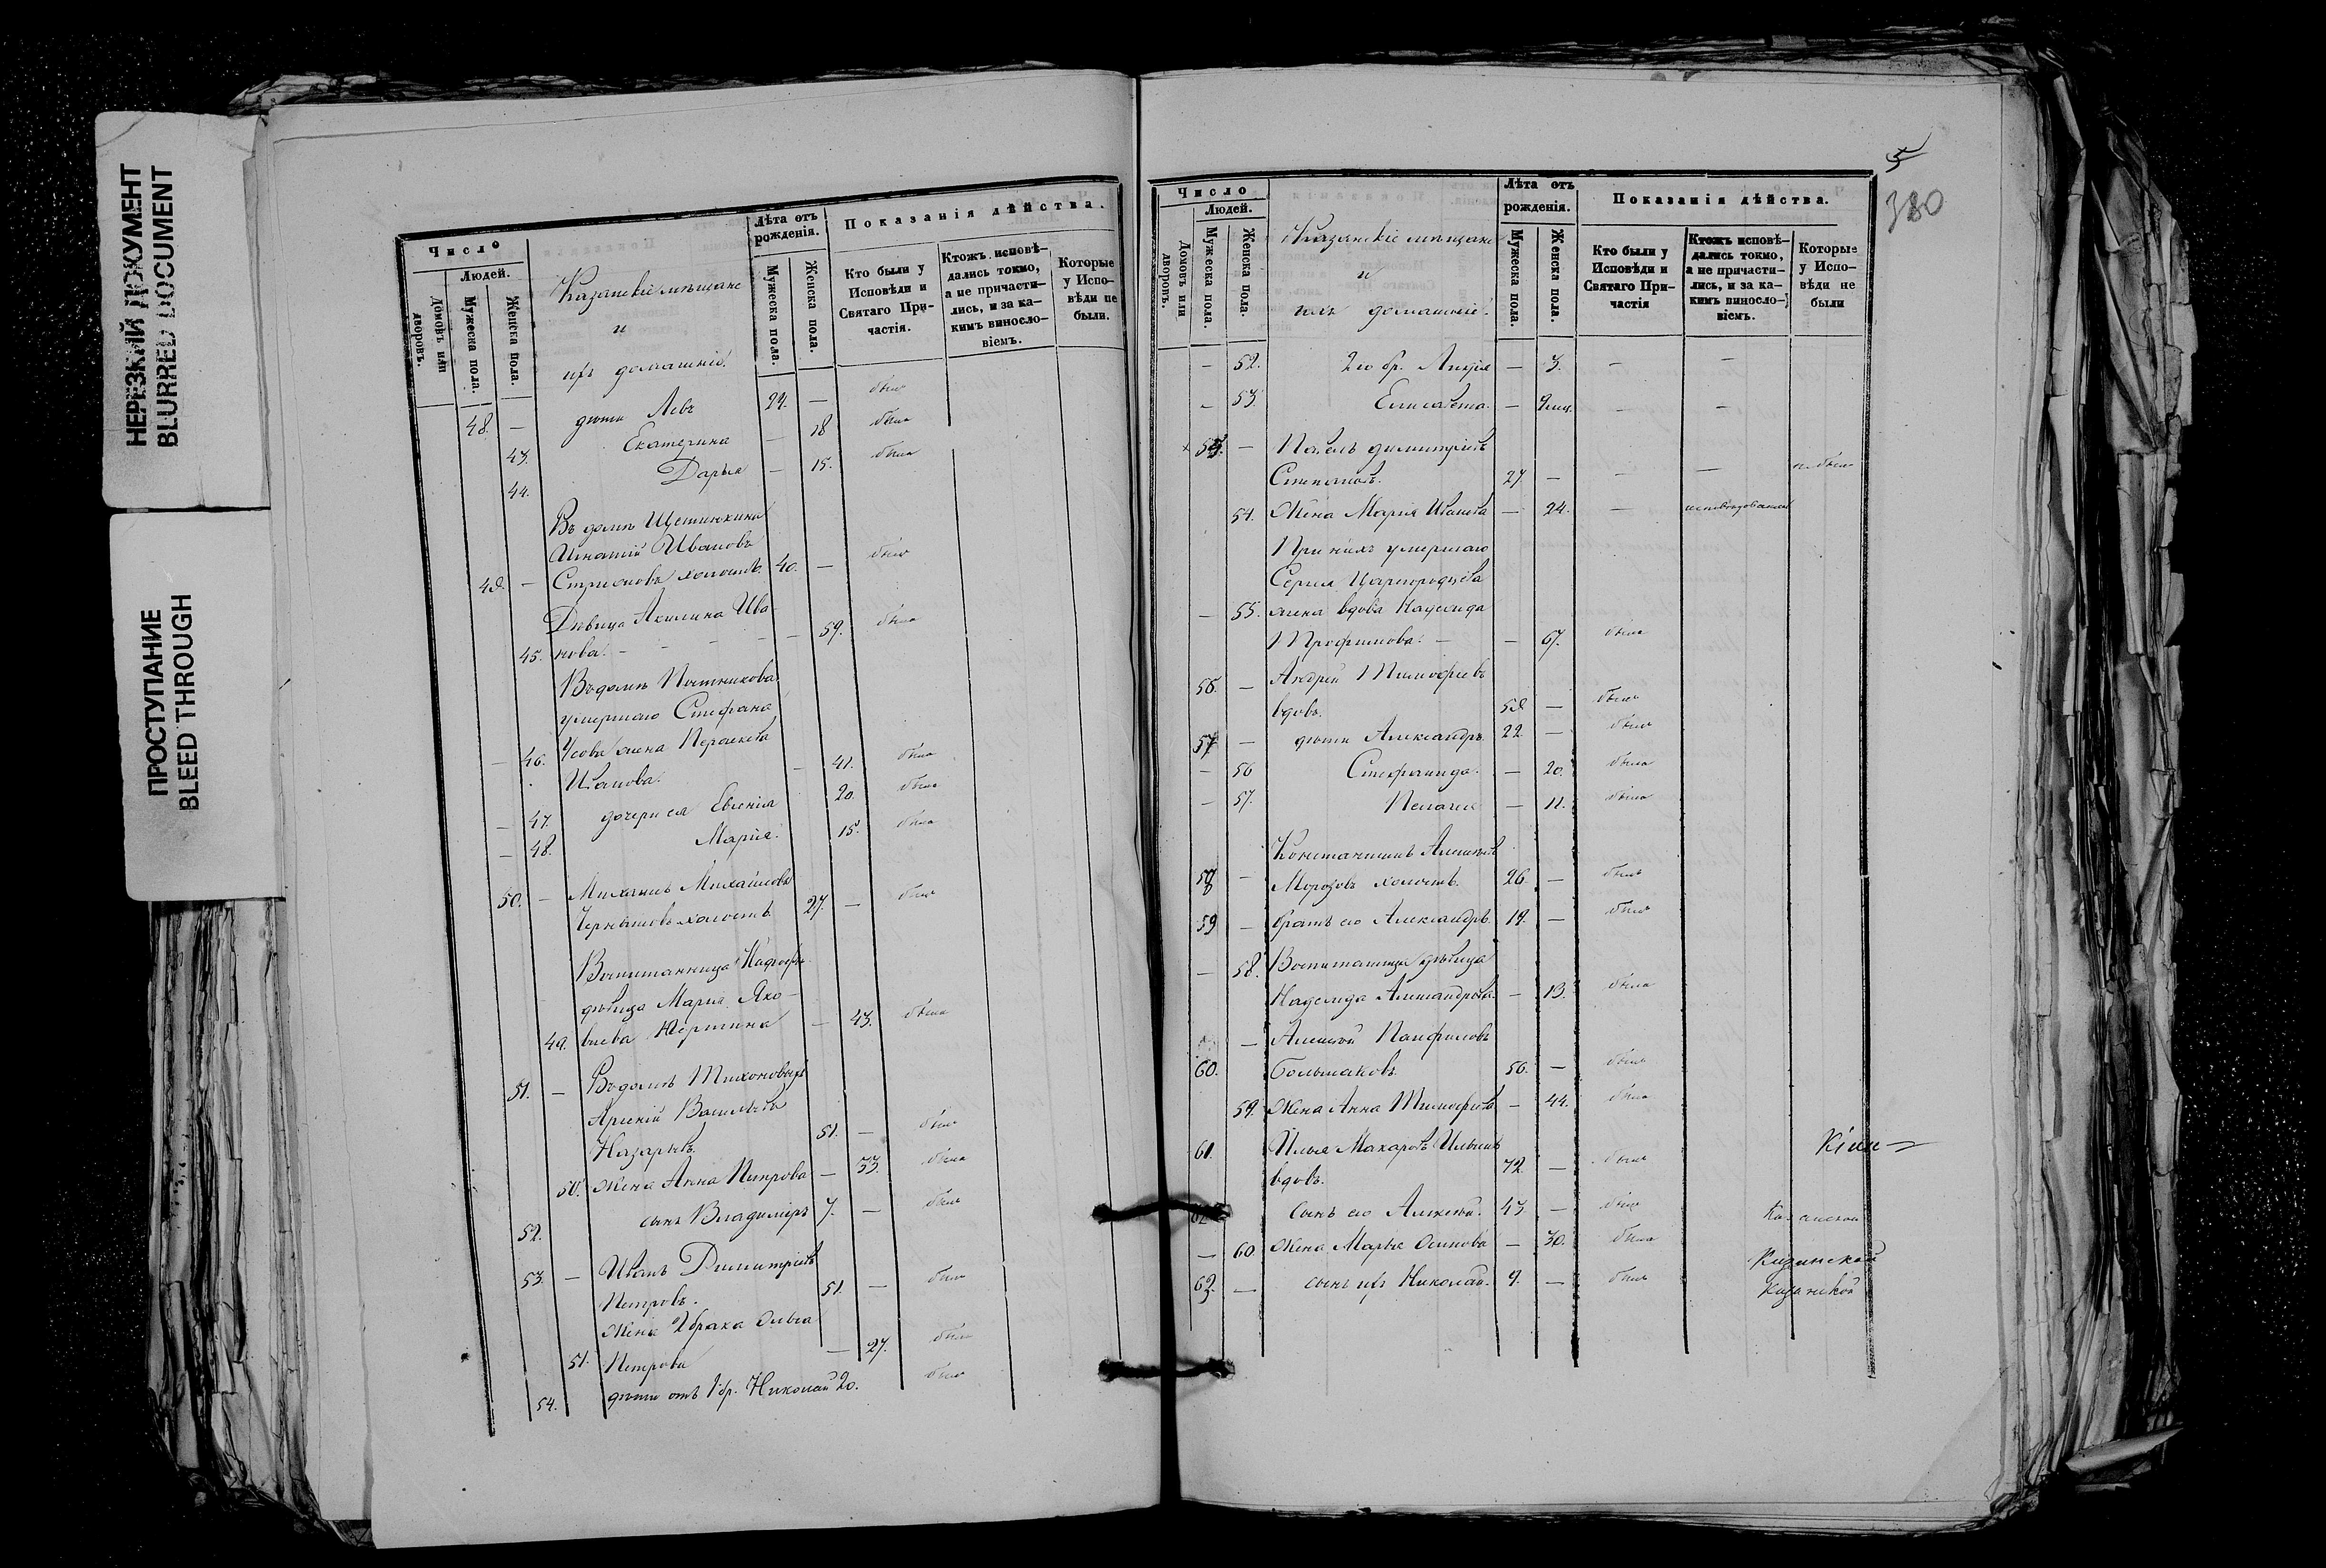 НЕРЕЗКИЙ ДОКУМЕНТ
BLURRED DOCUMENT
ПРОСТУПАНИЕ
BLEED THROUGH
Число
Людей.
Домовъ или дворовъ.
Мужеска пола.
Женска пола.
Казанскіе мѣщане
и
ихъ домашніе.
Лѣта отъ рожденія.
Мужеска пола.
Женска пола.
Показанія дѣйства.
Кто были у Исповѣди и Святаго Причастія.
Ктожъ исповѣдались токмо, а не причастились, и за какимъ винословіемъ.
Которые у Исповѣди не были.
48. — дѣти Левъ 24. — былъ
43. Екатерина — 18 была
44. Дарья — 15. была
Въ домѣ Щетинкина
Игнатій Ивановъ
49. — холостъ. 40. — былъ
Дѣвица Акилина Ива
45. нова. — 59. была
Въ домѣ
умершаго Стефана
— 46. жена
Иванова. — 41. была
— 47. дочери ея Евгенія 20. была
— 48. Марія. 15. была
50. — Михаилъ Михайловъ
Чернышовъ холостъ. 27. — былъ
Воспитанница
дѣвица Марія Яко-
49. влева — 43. была
51. — Въ домѣ Тихоновыхъ
Арсеній Васильевъ
Назарьевъ. 51. — былъ
50. Жена Анна Петрова — 33. была
52. сынъ Владиміръ 7. — былъ
53. — Иванъ Димитріевъ
Петровъ. 51. — былъ
Жена 2 брака Ольга
51. Петрова — 27. была
54. дѣти отъ 1 бр. Николай 20. былъ
5
380
Число
Людей.
Домовъ или дворовъ.
Мужеска пола.
Женска пола.
Казанскіе мѣщане
и
ихъ домашніе.
Лѣта отъ рожденія.
Мужеска пола.
Женска пола.
Показанія дѣйства.
Кто были у Исповѣди и Святаго Причастія
Ктожъ исповѣдались токмо, а не причастились, и за какимъ винословіемъ.
Которые у Исповѣди не были
— 52. 2го бр. Лидія — 3. — —
— 53. Елисавета. — 9 мц. — —
55. — Павелъ Димитріевъ
Степановъ. 27. — — — не былъ
54. Жена Марія Иванова — 24. —
При нихъ умершаго
Сергія Царегородцева
— 55. жена вдова Надежда
Трофимова. — — 67. была
56. — Андрей Тимофеевъ
вдовъ. 59 — былъ
57 — дѣти Александръ 22. — былъ
— 56 Стефанида. — 20. была
— 57. Пелагея — 11. была
Константинъ Алексѣевъ
58 — Морозовъ холостъ. 26. — былъ
59 — братъ его Александръ 19. — былъ
— 58. Воспитанница дѣвица
Надежда Александрова — 13. была
— Алексѣй Панфиловъ
60. Большаковъ. 56. — былъ
59. Жена Анна Тимофеева — 44. была
61. Илья Макаровъ Ильинъ
вдовъ. 72. — былъ
62 Сынъ его Алексѣй. 43. — былъ
— 60 Жена Марья Осипова — 30. была Казанской
63. — сынъ ихъ Николай. 9. — былъ Казанской